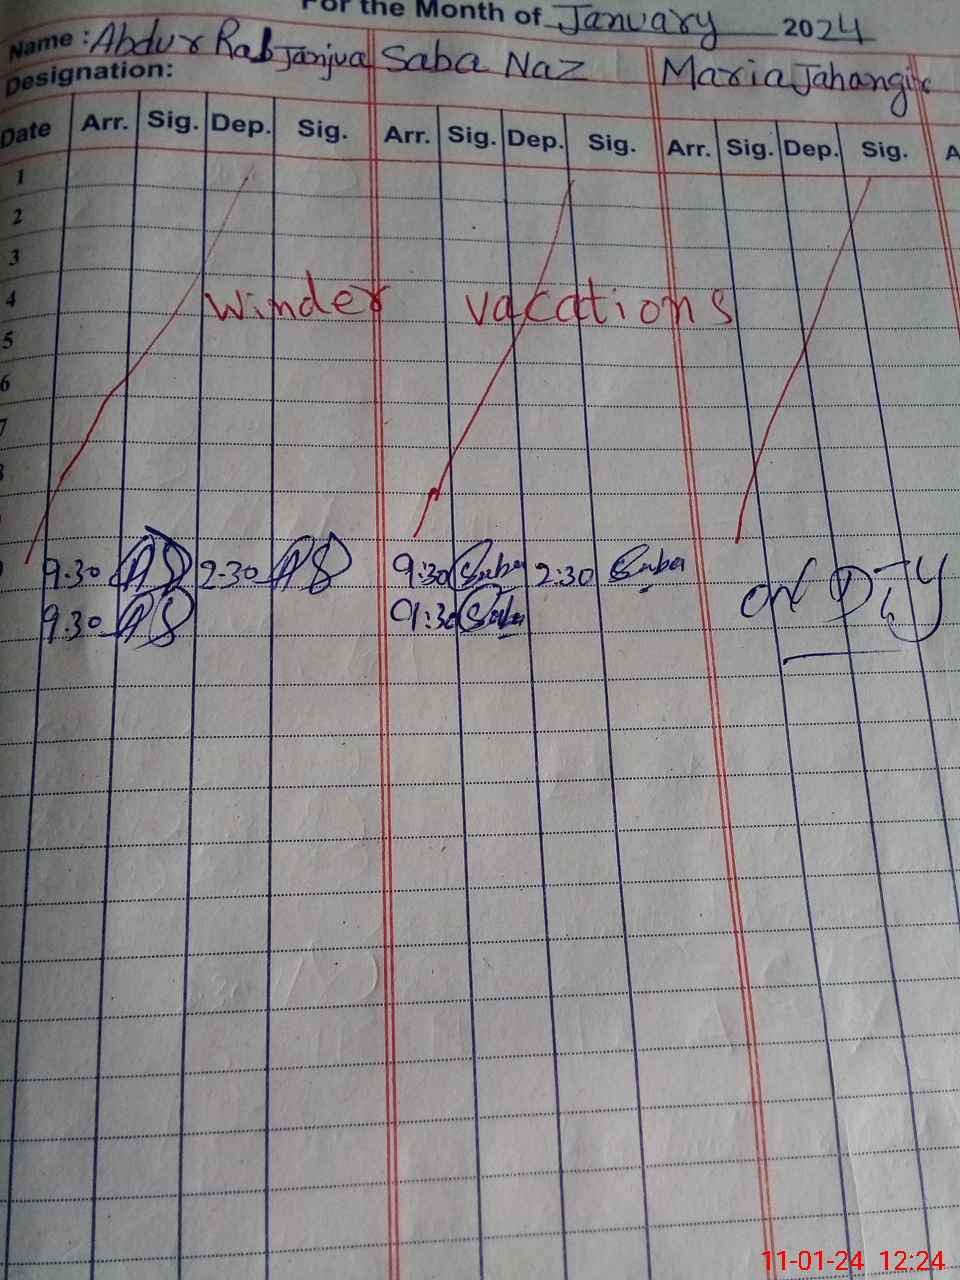 For the Month of January 2024
Name : Abdur Rab Janjua Saba Naz Maria Jahangir
Designation:
Date Arr. Sig. Dep. Sig. Arr. Sig. Dep. Sig. Arr. Sig. Dep. Sig. A
1
2
3
4 Winder vacations
5
6
7
8
9.30 AS 2.30 AS 9:30 Saba 2:30 Saba
9.30 AS 9:30 Saba
11-01-24 12:24